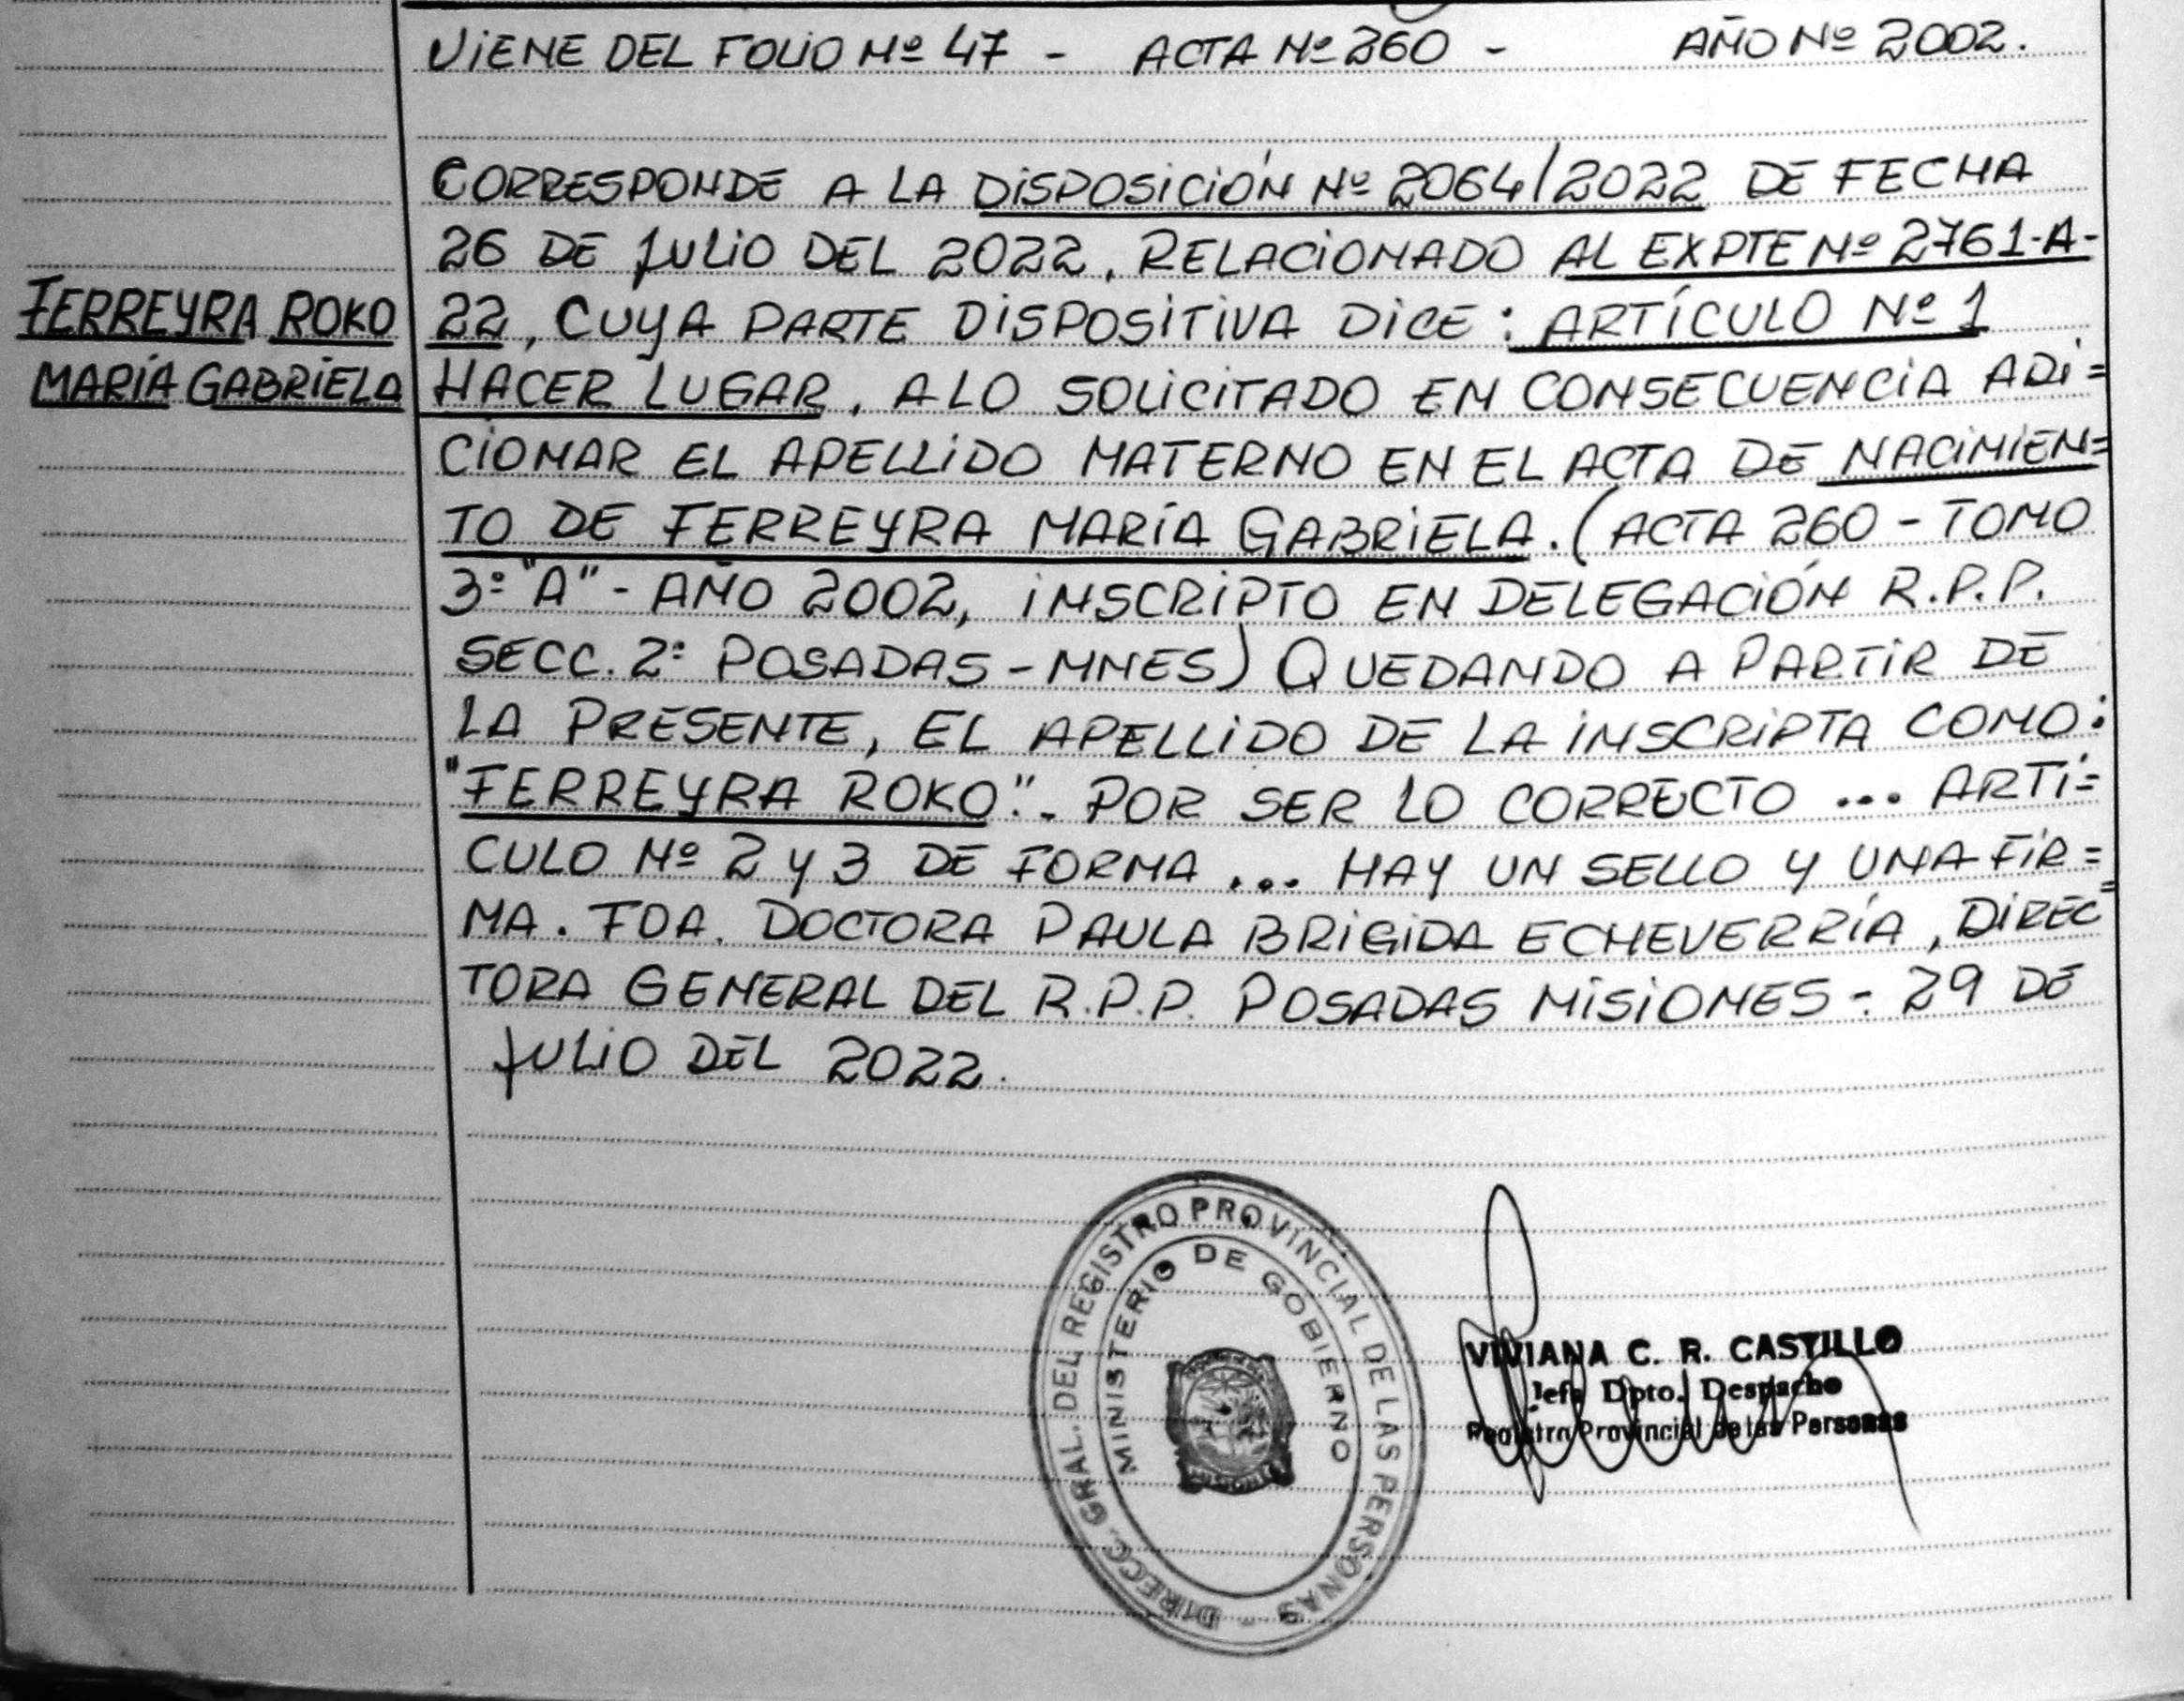 VIENE DEL FOLIO Nº 47 - ACTA Nº 260 - AÑO Nº 2002.
CORRESPONDE A LA DISPOSICIÓN Nº 2064/2022 DE FECHA
26 DE JULIO DEL 2022, RELACIONADO AL EXPTE Nº 2761-A-
FERREYRA ROKO
22, CUYA PARTE DISPOSITIVA DICE: ARTÍCULO Nº 1
MARÍA GABRIELA
HACER LUGAR, A LO SOLICITADO EN CONSECUENCIA ADI=
CIONAR EL APELLIDO MATERNO EN EL ACTA DE NACIMIEN=
TO DE FERREYRA MARÍA GABRIELA. (ACTA 260 - TOMO
3º "A" - AÑO 2002, INSCRIPTO EN DELEGACIÓN R.P.P.
SECC. 2º POSADAS - MNES) QUEDANDO A PARTIR DE
LA PRESENTE, EL APELLIDO DE LA INSCRIPTA COMO:
"FERREYRA ROKO".- POR SER LO CORRECTO ... ARTI=
CULO Nº 2 Y 3 DE FORMA ... HAY UN SELLO Y UNA FIR=
MA. FDA. DOCTORA PAULA BRIGIDA ECHEVERRÍA, DIREC=
TORA GENERAL DEL R.P.P. POSADAS MISIONES - 29 DE
JULIO DEL 2022.
DIRECC. GRAL. DEL REGISTRO PROVINCIAL DE LAS PERSONAS -
MINISTERIO DE GOBIERNO
VIVIANA C. R. CASTILLO
Jefe Dpto. Despacho
Registro Provincial de las Personas